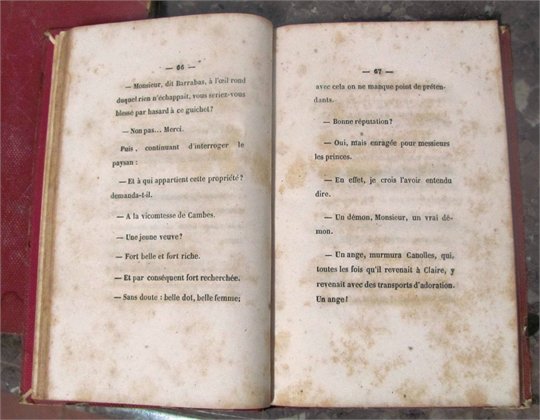 — 66 —
— Monsieur, dit Barrabas, à l'œil rond
duquel rien n'échappait, vous seriez-vous
blessé par hasard à ce guichet?
— Non pas... Merci.
Puis, continuant d'interroger le
paysan :
— Et à qui appartient cette propriété?
demanda-t-il.
— A la vicomtesse de Cambes.
— Une jeune veuve?
— Fort belle et fort riche.
— Et par conséquent fort recherchée.
— Sans doute : belle dot, belle femme;
— 67 —
avec cela on ne manque point de préten-
dants.
— Bonne réputation?
— Oui, mais enragée pour messieurs
les princes.
— En effet, je crois l'avoir entendu
dire.
— Un démon, Monsieur, un vrai dé-
mon.
— Un ange, murmura Canolles, qui,
toutes les fois qu'il revenait à Claire, y
revenait avec des transports d'adoration.
Un ange!